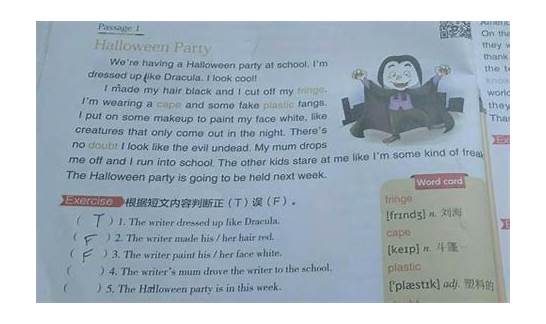 Passage 1
Halloween Party
We're having a Halloween party at school. I'm
dressed up like Dracula. I look cool!
I made my hair black and I cut off my fringe.
I'm wearing a cape and some fake plastic fangs.
I put on some makeup to paint my face white, like
creatures that only come out in the night. There's
no doubt I look like the evil undead. My mum drops
me off and I run into school. The other kids stare at me like I'm some kind of freak
The Halloween party is going to be held next week.
Exercise 根据短文内容判断正（T）误（F）。
( T ) 1. The writer dressed up like Dracula.
( F ) 2. The writer made his / her hair red.
( F ) 3. The writer paint his / her face white.
( ) 4. The writer's mum drove the writer to the school.
( ) 5. The Halloween party is in this week.
Word card
fringe
[frɪndʒ] n. 刘海
cape
[keɪp] n. 斗篷
plastic
['plæstɪk] adj. 塑料的
On the
they w
thank
the t
know
world
they
Tha